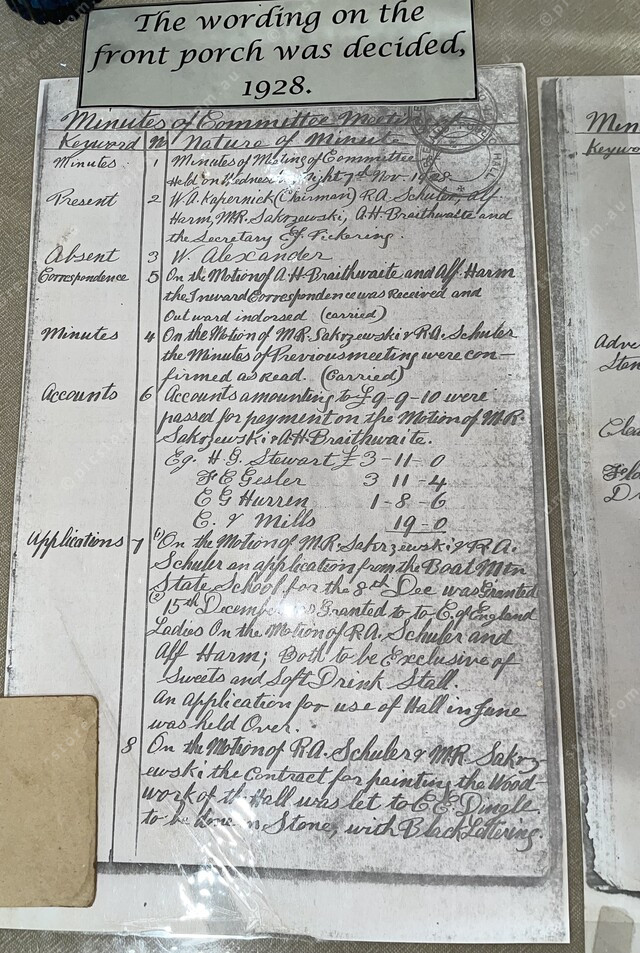 The wording on the
front porch was decided,
1928.
Minutes of Committee Meeting of
Keyword No Nature of Minute
Minutes 1 Minutes of Meeting of Committee
Held on Wednesday Night 7th Nov. 1928
Present 2 W.A. Kapernick (Chairman) R.A. Schuler, Alf
Harm, M.R. Sakrzewski, A.H. Braithwaite and
the Secretary E.J. Pickering.
Absent 3 W. Alexander
Correspondence 5 On the Motion of A.H. Braithwaite and Alf Harm
the Inward Correspondence was Received and
Outward indorsed (carried)
Minutes 4 On the Motion of M.R. Sakrzewski & R.A. Schuler
the Minutes of Previous meeting were con-
firmed as Read. (Carried)
Accounts 6 Accounts amounting to £9-9-10 were
passed for payment on the Motion of M.R.
Sakrzewski & A.H. Braithwaite.
Eg. H.G. Stewart £3-11-0
F E Gesler 3 11-4
E G Hurren 1-8-6
E. & Mills 19-0
Applications 7 (1) On the Motion of M.R. Sakrzewski & R.A.
Schuler an application from the Boat Mtn
State School for the 8th Dec was Granted
(2) 15th December was Granted to to C. of England
Ladies On the Motion of R.A. Schuler and
Alf Harm; Both to be Exclusive of
Sweets and Soft Drink Stall
An application for use of Hall in June
was held Over.
8 On the Motion of R.A. Schuler & M.R. Sakrz-
ewski the Contract for painting the Wood
work of the Hall was let to E.E. Dingle
to be done in Stone, with Black Lettering
Men
Keywo
Adve
Sten
Clea